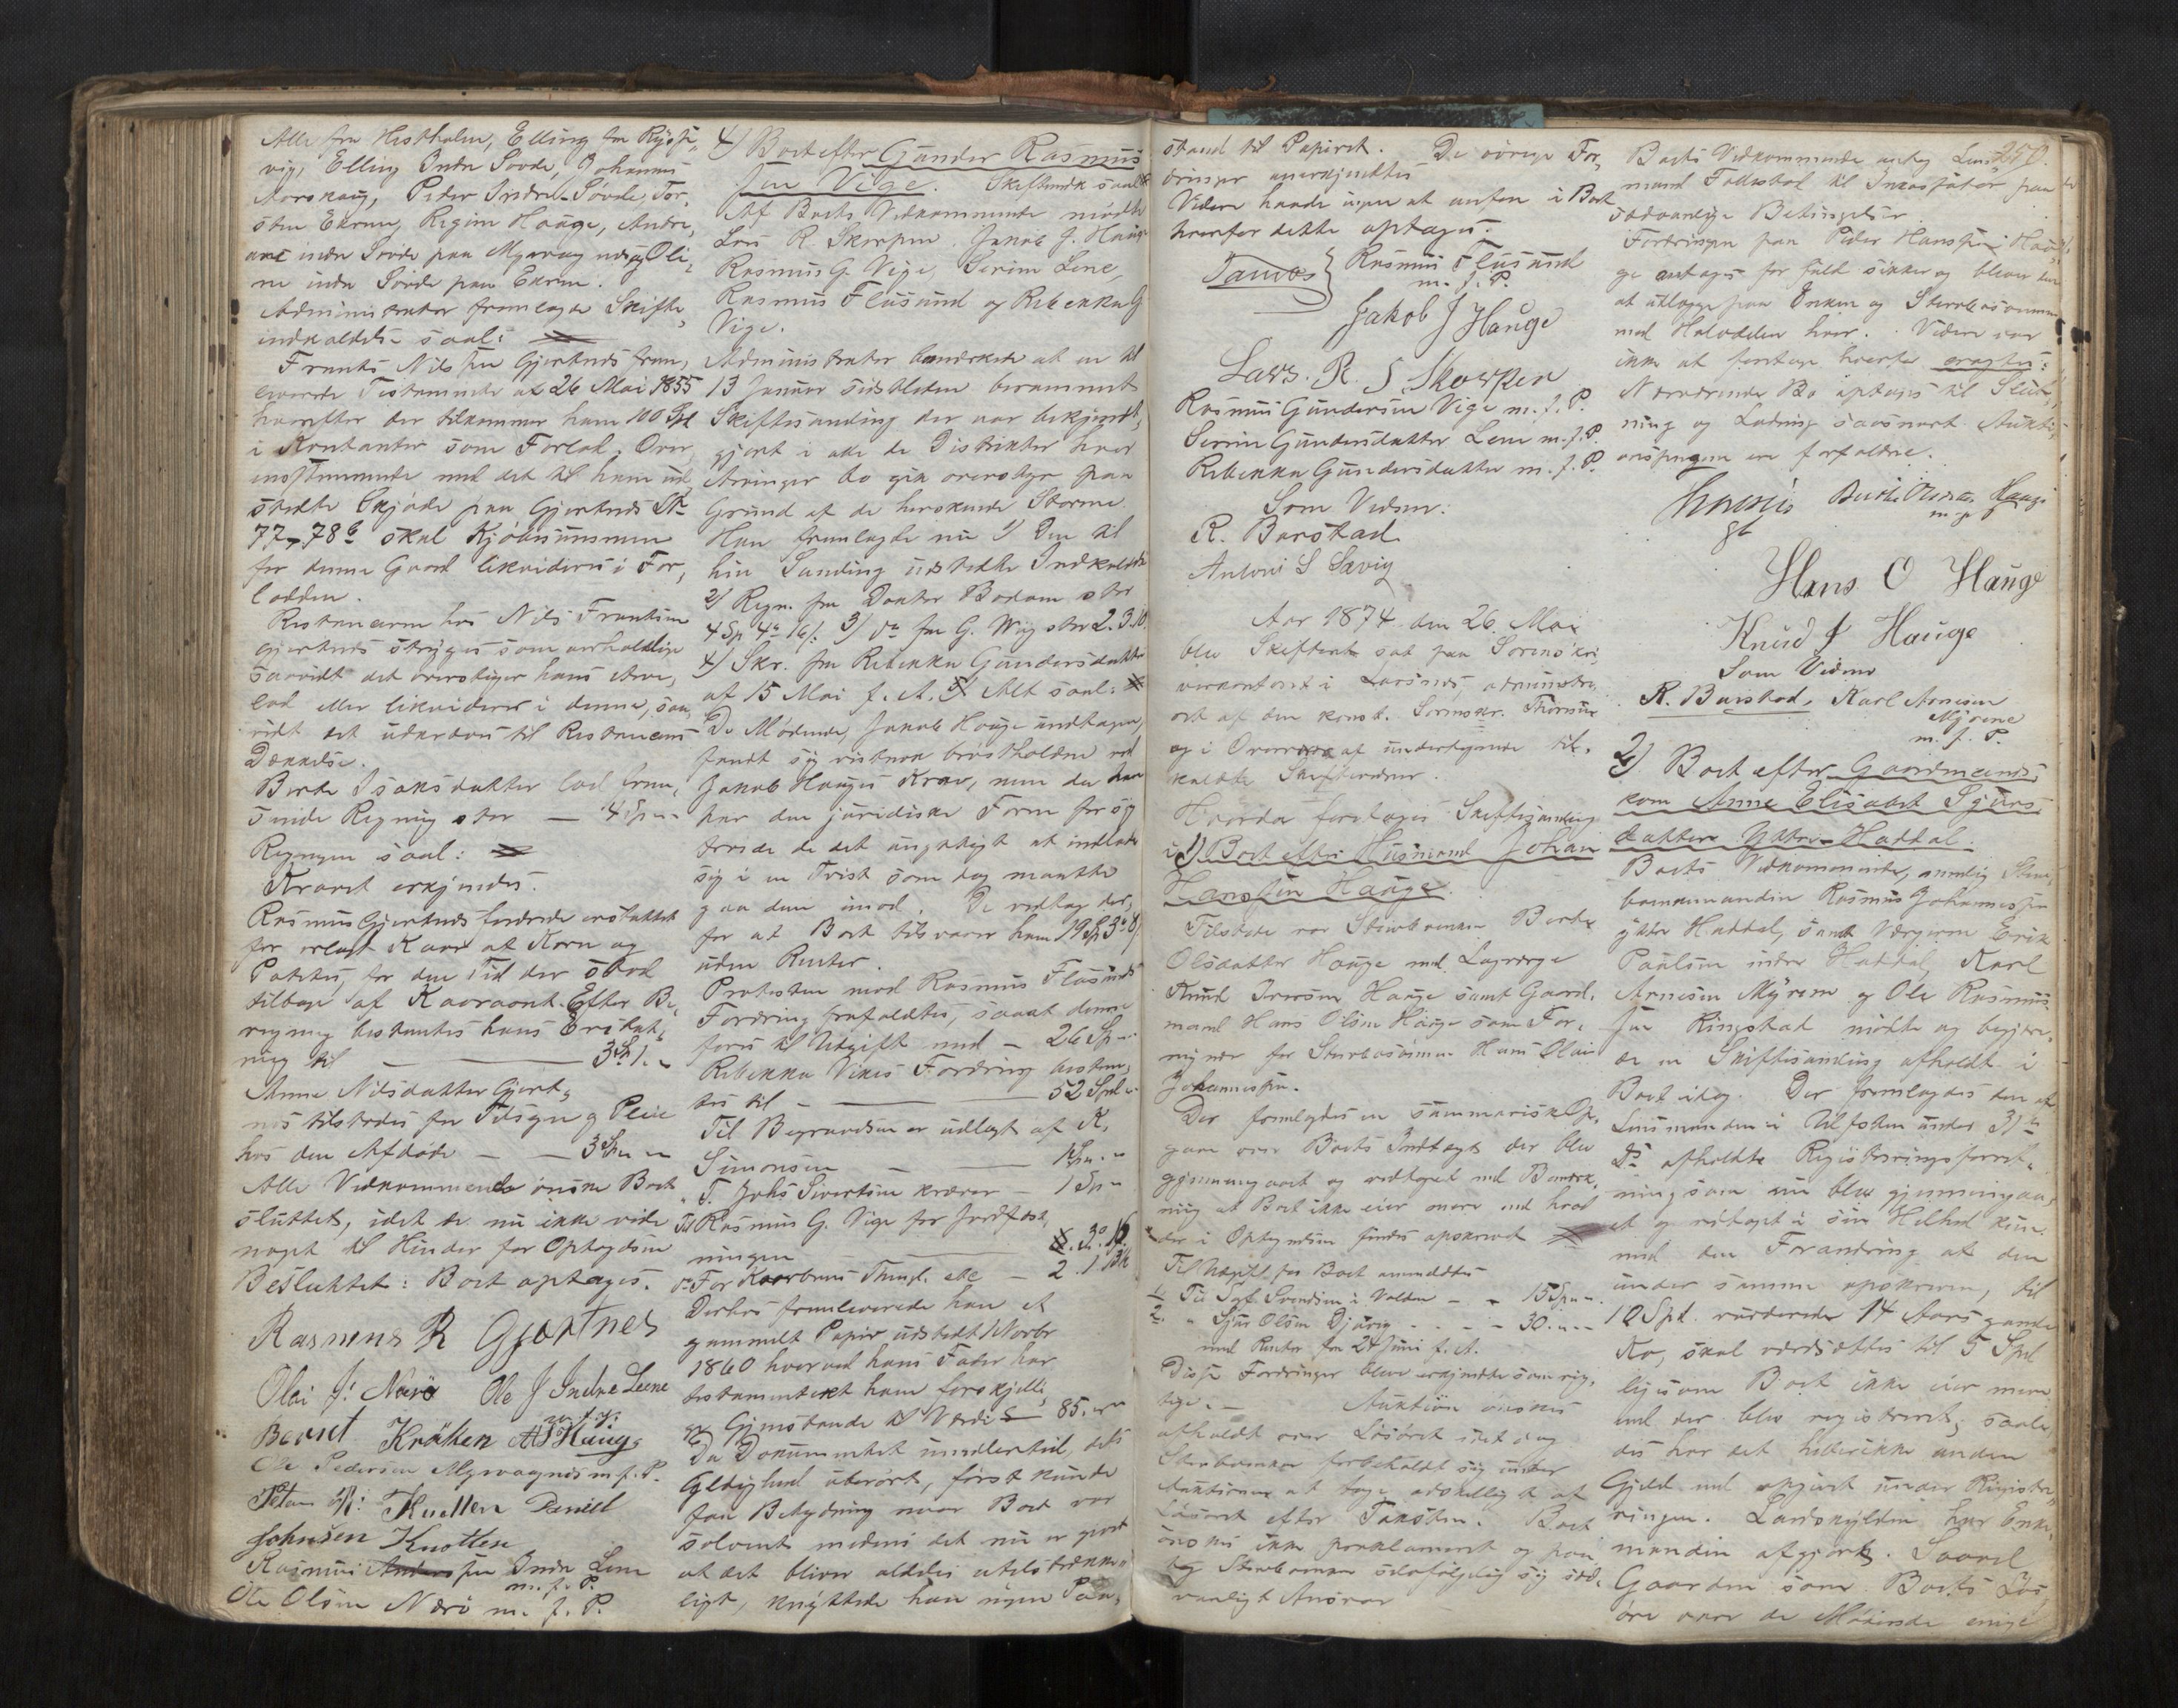 Alle fra Hestholm, Elling fra
vig, Elling Indre Sovde, Johannes
Aarskaug, Peder Indre-Sövde, Tor-
sten Ekrem, Regine Hauge, Andri-
ane indre Sovde paa Myrvaag og Oli-
ne indre Sövde paa Ekrem.
Administrator fremlagde Skifte-
indkaldelse saal:
Frants Nils søn Gjertnes frem-
leverede Testamente af 26 Mai 1855
hvorefter der tilkommer ham 100 Spd
i Kontanter som Forlod. Over-
ensstemmende med det til ham ud-
stedte Skjøde paa Gjertnes No
77, 78b skal Kjöbesummen
for denne Gaard likvideres i For-
lodden.
Restancerne hos Nils Frantsen
Gjertnes stryges som uerholdelige
saavidt det overstiger hans Arve-
lod eller likvideres i denne, saa-
vidt det udkræves til Restancens
Dækkelse.
Berte Isaksdatter lod frem-
sende Regning stor — 4 Sp " "
Regningen saal:
Kravet erkjendes.
Rasmus Gjertnes fordrede erstattet
for erlagt Kaar af Korn og
Poteter, for den Tid der stod
tilbage af Kaaraaret. Efter Be-
regning bestemtes hans Erstat-
ning til — 3 Sp 1. "
Anne Nilsdatter Gjert-
nes tilstodes for Tilsyn og Pleie
hos den Afdøde — — 3 Sp " "
Alle Vedkommende ønske Boet
sluttet, idet de nu ikke vide
noget til Hinder for Optagelsen
Besluttet: Boet optages.
Rasmus R Gjertnes
Olai J: Nærö Ole J Indre Leene
m. f. P.
Bernt Kråken A Haug
Ole Pedersen Myrvagnes m. f. P.
Peter Knotten Daniel
Johnsen Knotten
Rasmus søn Indre Lene
m. f. P.
Ole Olsen Nærö m. f. P.
4) Boet efter Gunder Rasmus
søn Vige. Skiftendk saal:
Af Boets Vedkommende mødte
Lars R. Skorpen, Jakob J. Hauge
Rasmus G. Vige, Serine Lene,
Rasmus Flusund og Rebekka G
Vige.
Administrator bemærkede at en til
13 Januar sidstleden berammet
Skiftesamling der var bekjendt-
gjort i alle de Distrikter hvor
Arvinger bo gik overstyr paa
Grund af de herskende Storme
Han fremlagde nu 1) Den til
hin Samling udstedte Indkaldelse
2) Regn. fra Doktor Bodom stor
4 Sp 4 16/: 3) do fra G. Wiig stor 2.3.10.
4) Skr. fra Rebekka Gundersdatter
af 15 Mai f. A. Alt saal:
De Mödende, Jakob Hauge undtagen,
fandt sig vistnok beføiede ved
Jakob Hauges Krav, men da han
har den juridiske Form for sig
troede de det unyttigt at indlade
sig i en Tvist som dog maatte
gaa dem imod. De vedtog der-
for at Boet tilsvarer ham 19 Sp 3 8/
uden Renter.
Protesten mod Rasmus Flusunds
Fordring frafaldtes, saaat denne
føres til Udgift med — 26 Sp " "
Rebekka Vikes Fordring bestem-
tes til — 52 Spd "
Til Begravelsen er udlagt af K.
Simonsen — 1 Sp " "
" T. Johs Sivertsen kræver — 1 Sp "
Til Rasmus G. Vige for Jordfæst-
ningen — 3. 16.
do For Kaarbrevs Thingl. etc — 2. 1
Derhos fremleverede han et
gammelt Papir udstedt Novbr
1860 hvorved hans Fader har
testamenteret ham forskjelli-
ge Gjenstande til Værdi 85. "
Da Dokumentet imidlertid, dets
Gyldighed uberørt, først kunde
faa Betydning naar Boet var
solvent medens det nu er givet
at det bliver aldeles utilstrække-
ligt, knyttede han ingen Paa-
stand til Papiret. De øvrige For-
dringer anerkjendtes
Videre havde ingen at anføre i Boet
hvorfor dette optages.
Rasmus Flusund
m. f. P.
Jakob J Hauge
Lars. R. S. Skorpen
Rasmus Gundersen Vige m. f. P.
Serine Gundersdatter Lene m. f. P.
Rebekka Gundersdatter m. f. P.
Som Vidner:
R. Barstad
Antoni S Sævig
Aar 1874 den 26. Mai
blev Skifteret sat paa Sorenskri-
verkontoret i Larsnes, administre-
ret af den konst. Sorenskr.
og i Overvær af undertegnede til-
kaldte Skiftevidner.
Hvorda foretoges Skiftesamling
i 1) Boet efter Husmand Johan
Hanssen Hauge.
Tilstede var Stervboenken Berte
Olsdatter Hauge med Lagværge
Knud Iversen Hauge samt Gaard-
mand Hans Olsen Hauge som For-
mynder for Stervbosönnen Hans Olai
Johannessen.
Der fremlagdes en summarisk Op-
gave over Boets Indtægt der blev
gjennemgaaet og vedtaget med Bemærk-
ning at Boet ikke eier mere end hvad
der i Optegnelsen findes opskrevet
Til Udgift for Boet anmeldtes
1. Til Sivf. Svendsen i Volden — — 15 Sp " "
2. " Sjur Olsen Djuvig — — 30. " "
med Renter fra 24 Juni f. A.
Disse Fordringer bleve erkjendte som rig-
tige. — Auktion ønskes
afholdt over Løsøret idet dog
Stervboenken forbeholdt sig under
Auktionen at tage adskilligt af
Løsøret efter Taksten. Boet
ønskes ikke proklameret og paa-
tog Stervboenken selvfølgelig sig sæd-
vanligt Ansvar
250.
Boets Vedkommende antog Lens-
mand Tollestol til Inkassator paa de
sædvanlige Betingelser.
Fordringen paa Peder Hanssen Hau-
ge antages for fuldt sikker og bliver den
at udlægge paa Enken og Stervbosönnen
med Halvdelen hver. Videre var
ikke at foretage hvorfor eragtes:
Nærværende Bo optages til Slut-
ning og Lodning saasnart Aukti-
onspengene ere forfaldne.
Berthe Olsdatter Hauge
m. p
Hans O Hauge
Knud J Hauge
Som Vidner
R. Barstad, Karl Arnesen
Myrene
m. f. P.
2) Boet efter Gaardmands
kone Anne Elisabet Sjurs
datter Ytre-Haddal.
Boets Vedkommende, nemlig Sterv-
boenkemanden Rasmus Johannessen
ydre Haddal, samt Værgerne Erik
Paulsen indre Haddal, Karl
Arnesen Myrene og Ole Rasmus-
søn Ringstad mødte og begjære-
de en Skiftesamling afholdt i
Boet idag. Der fremlagdes den af
Lensmanden i Ulfsten under 3)
Ds afholdte Registreringsforret-
ning som nu blev gjennemgaa-
et og vedtaget i sin Helhed kun
med den Forandring at den
under samme opskrevne, til
10 Spd. vurderede 14 Aars gamle
Ko, skal værdsættes til 5 Spd
ligesom Boet ikke eier mere
end der blev registreret; saale-
des har det heller ikke anden
Gjeld end opgivet under Registre-
ringen. Landskylden har Enke-
manden afgjort. Saavel
Gaarden som Boets Løs-
øre vare de Mødende enige